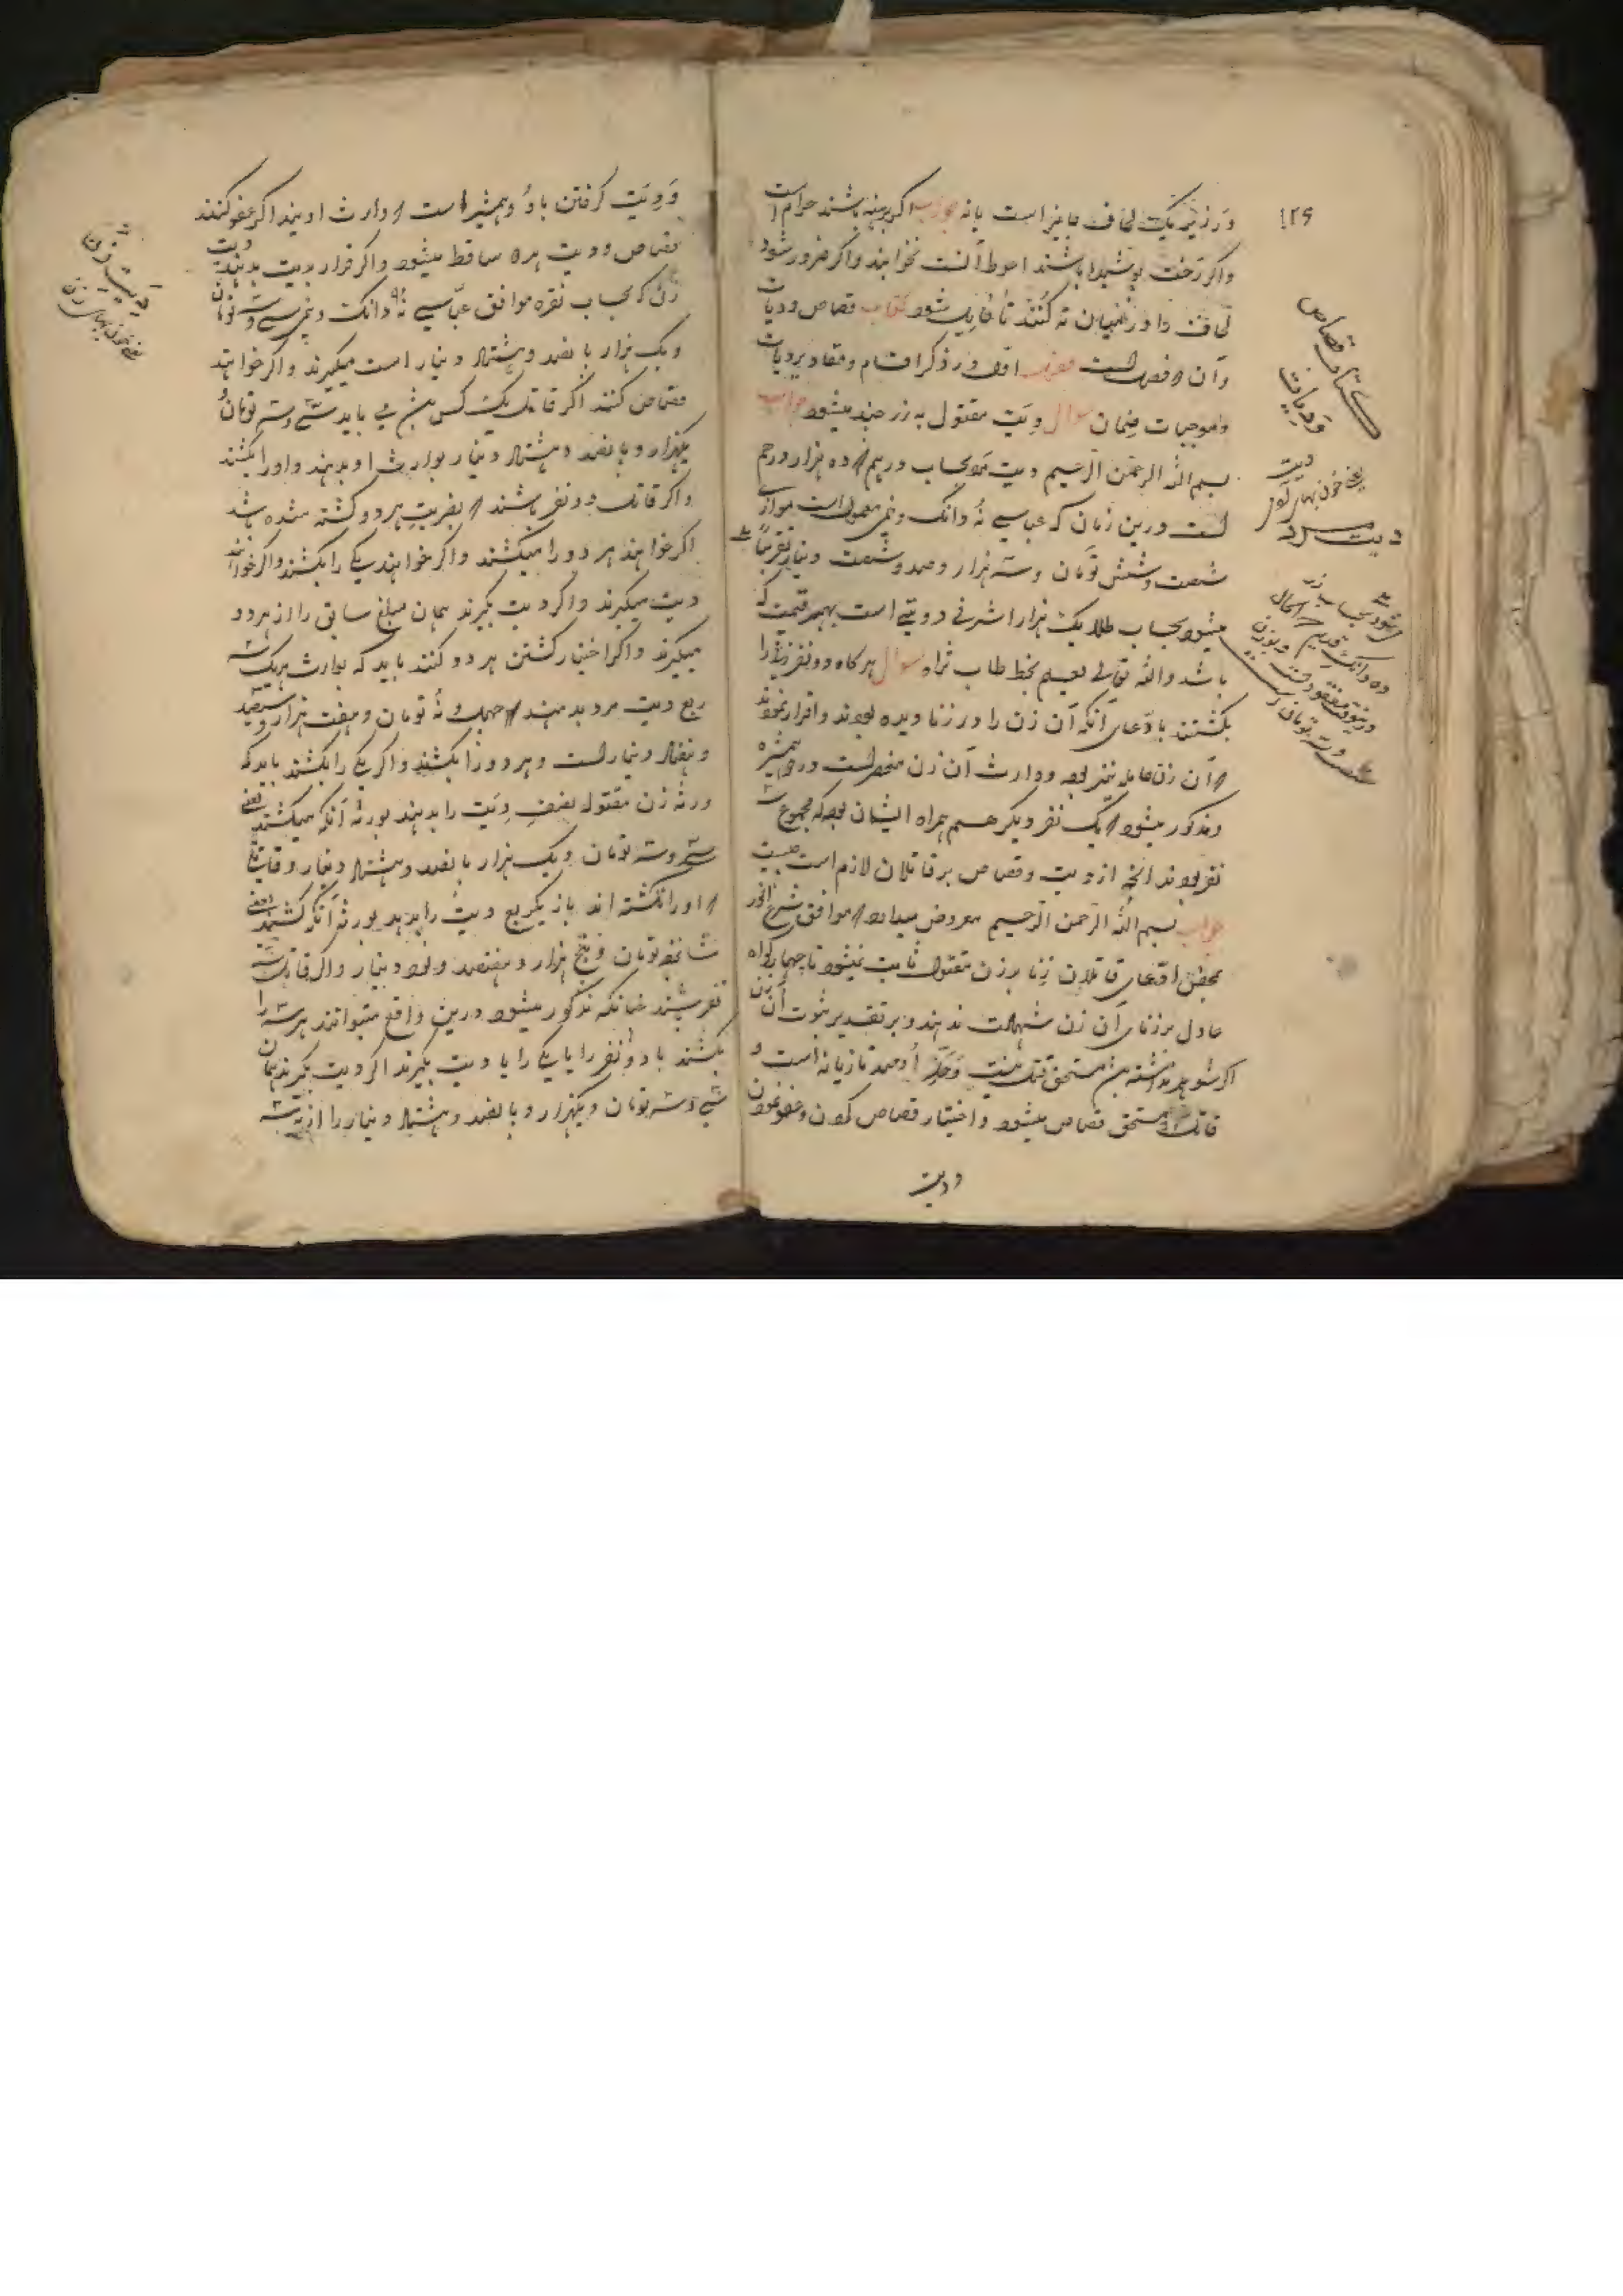 ۱۲۶
در زیر یک لحاف جایز است یا نه جواب اگر برهنه باشند حرام است
و اگر رخت پوشیده باشند احوط آنست نخوابند و اگر ضرور شود
لحاف را در میان ته کنند تا حایل شود کتاب قصاص و دیات
و آن فصل است اول در ذکر اقسام و مقادیر دیات
و موجبات ضمان سوال دیت مقتول به زر چند میشود جواب
بسم الله الرحمن الرحیم دیت مرد بحساب درهم ده هزار درهم
است درین زمان که عباسی نه دانک و نیم معمول است موازی
شصت و شش تومان و سه هزار و صد و شصت دینار تقریباً
میشود بحساب طلا یک هزار اشرفی دو بتی است بهر قیمت که
باشد والله تعالی یعلم بخط طاب ثراه سوال هرگاه دو نفر زنی را
بکشتند بادعای آنکه آن زن را در زنا دیده بودند و اقرار نمودند
آن زن حامله نیز بود و وارث آن زن منحصر است در همشیره
و مذکور میشود یک نفر دیگر هم همراه ایشان بود که مجموع سه
نفر بودند آنچه از دیت و قصاص بر قاتلان لازم است چیست
جواب بسم الله الرحمن الرحیم معروض میدارد موافق شرع انور
بمحض ادعای قاتلان زنا بر زن مقتول ثابت نمیشود تا چهار گواه
عادل بر زنای آن زن شهادت ندهند و بر تقدیر ثبوت آن زن
اگر شوهر نداشته مستحق قتل نیست و حد او صد تازیانه است و
قاتل مستحق قصاص میشود و اختیار قصاص کردن و عفو نمودن
و دیت
کتاب قصاص
و دیات
دیت
یعنی خون بهای
دیت مرد
و دیت گرفتن با دو همشیره است وارث اویند اگر عفو کنند
قصاص و دیت هر دو ساقط میشود و اگر قرار بدیت بدهند دیت
زن که بحساب نقره موافق عباسی نه دانک و نیم سی و سه تومان
و یک هزار پانصد و هشتاد دینار است میگیرند و اگر خواهند
قصاص کنند اگر قاتل یک کس بیش می باید سی و سه تومان و
یکهزار و پانصد و هشتاد دینار بوارث او بدهند و او را بکشند
و اگر قاتل دو نفر باشند بضربت هر دو کشته شده باشد
اگر خواهند هر دو را میکشند و اگر خواهند یکی را بکشند و اگر خواهند
دیت میگیرند و اگر دیت بگیرند همان مبلغ سابق را از هر دو
میگیرند و اگر اختیار کشتن هر دو کنند باید که بوارث هر یک سه
ربع دیت مرد بدهند چهل و نه تومان و هفت هزار و سیصد
و هفتاد دینار است و هر دو را بکشند و اگر یکی را بکشند باید که
ورثه زن مقتول نصف دیت را بدهند بورثه آنکه میکشند یعنی
سی و سه تومان و یک هزار پانصد و هشتاد دینار و قاتلی
او را نکشته اند باز یکربع دیت را بدهد بورثه آنکه کشتند یعنی
شانزده تومان و پنج هزار و هفتصد و نود دینار و اگر قاتل سه
نفر باشند چنانکه مذکور میشود درین واقع میتوانند هر سه را
بکشند یا دو نفر را یا یکی را یا دیت بگیرند اگر دیت بگیرند همان
سی و سه تومان و یکهزار و پانصد و هشتاد دینار را از هر سه
دیت زن
یعنی خون بهای زن